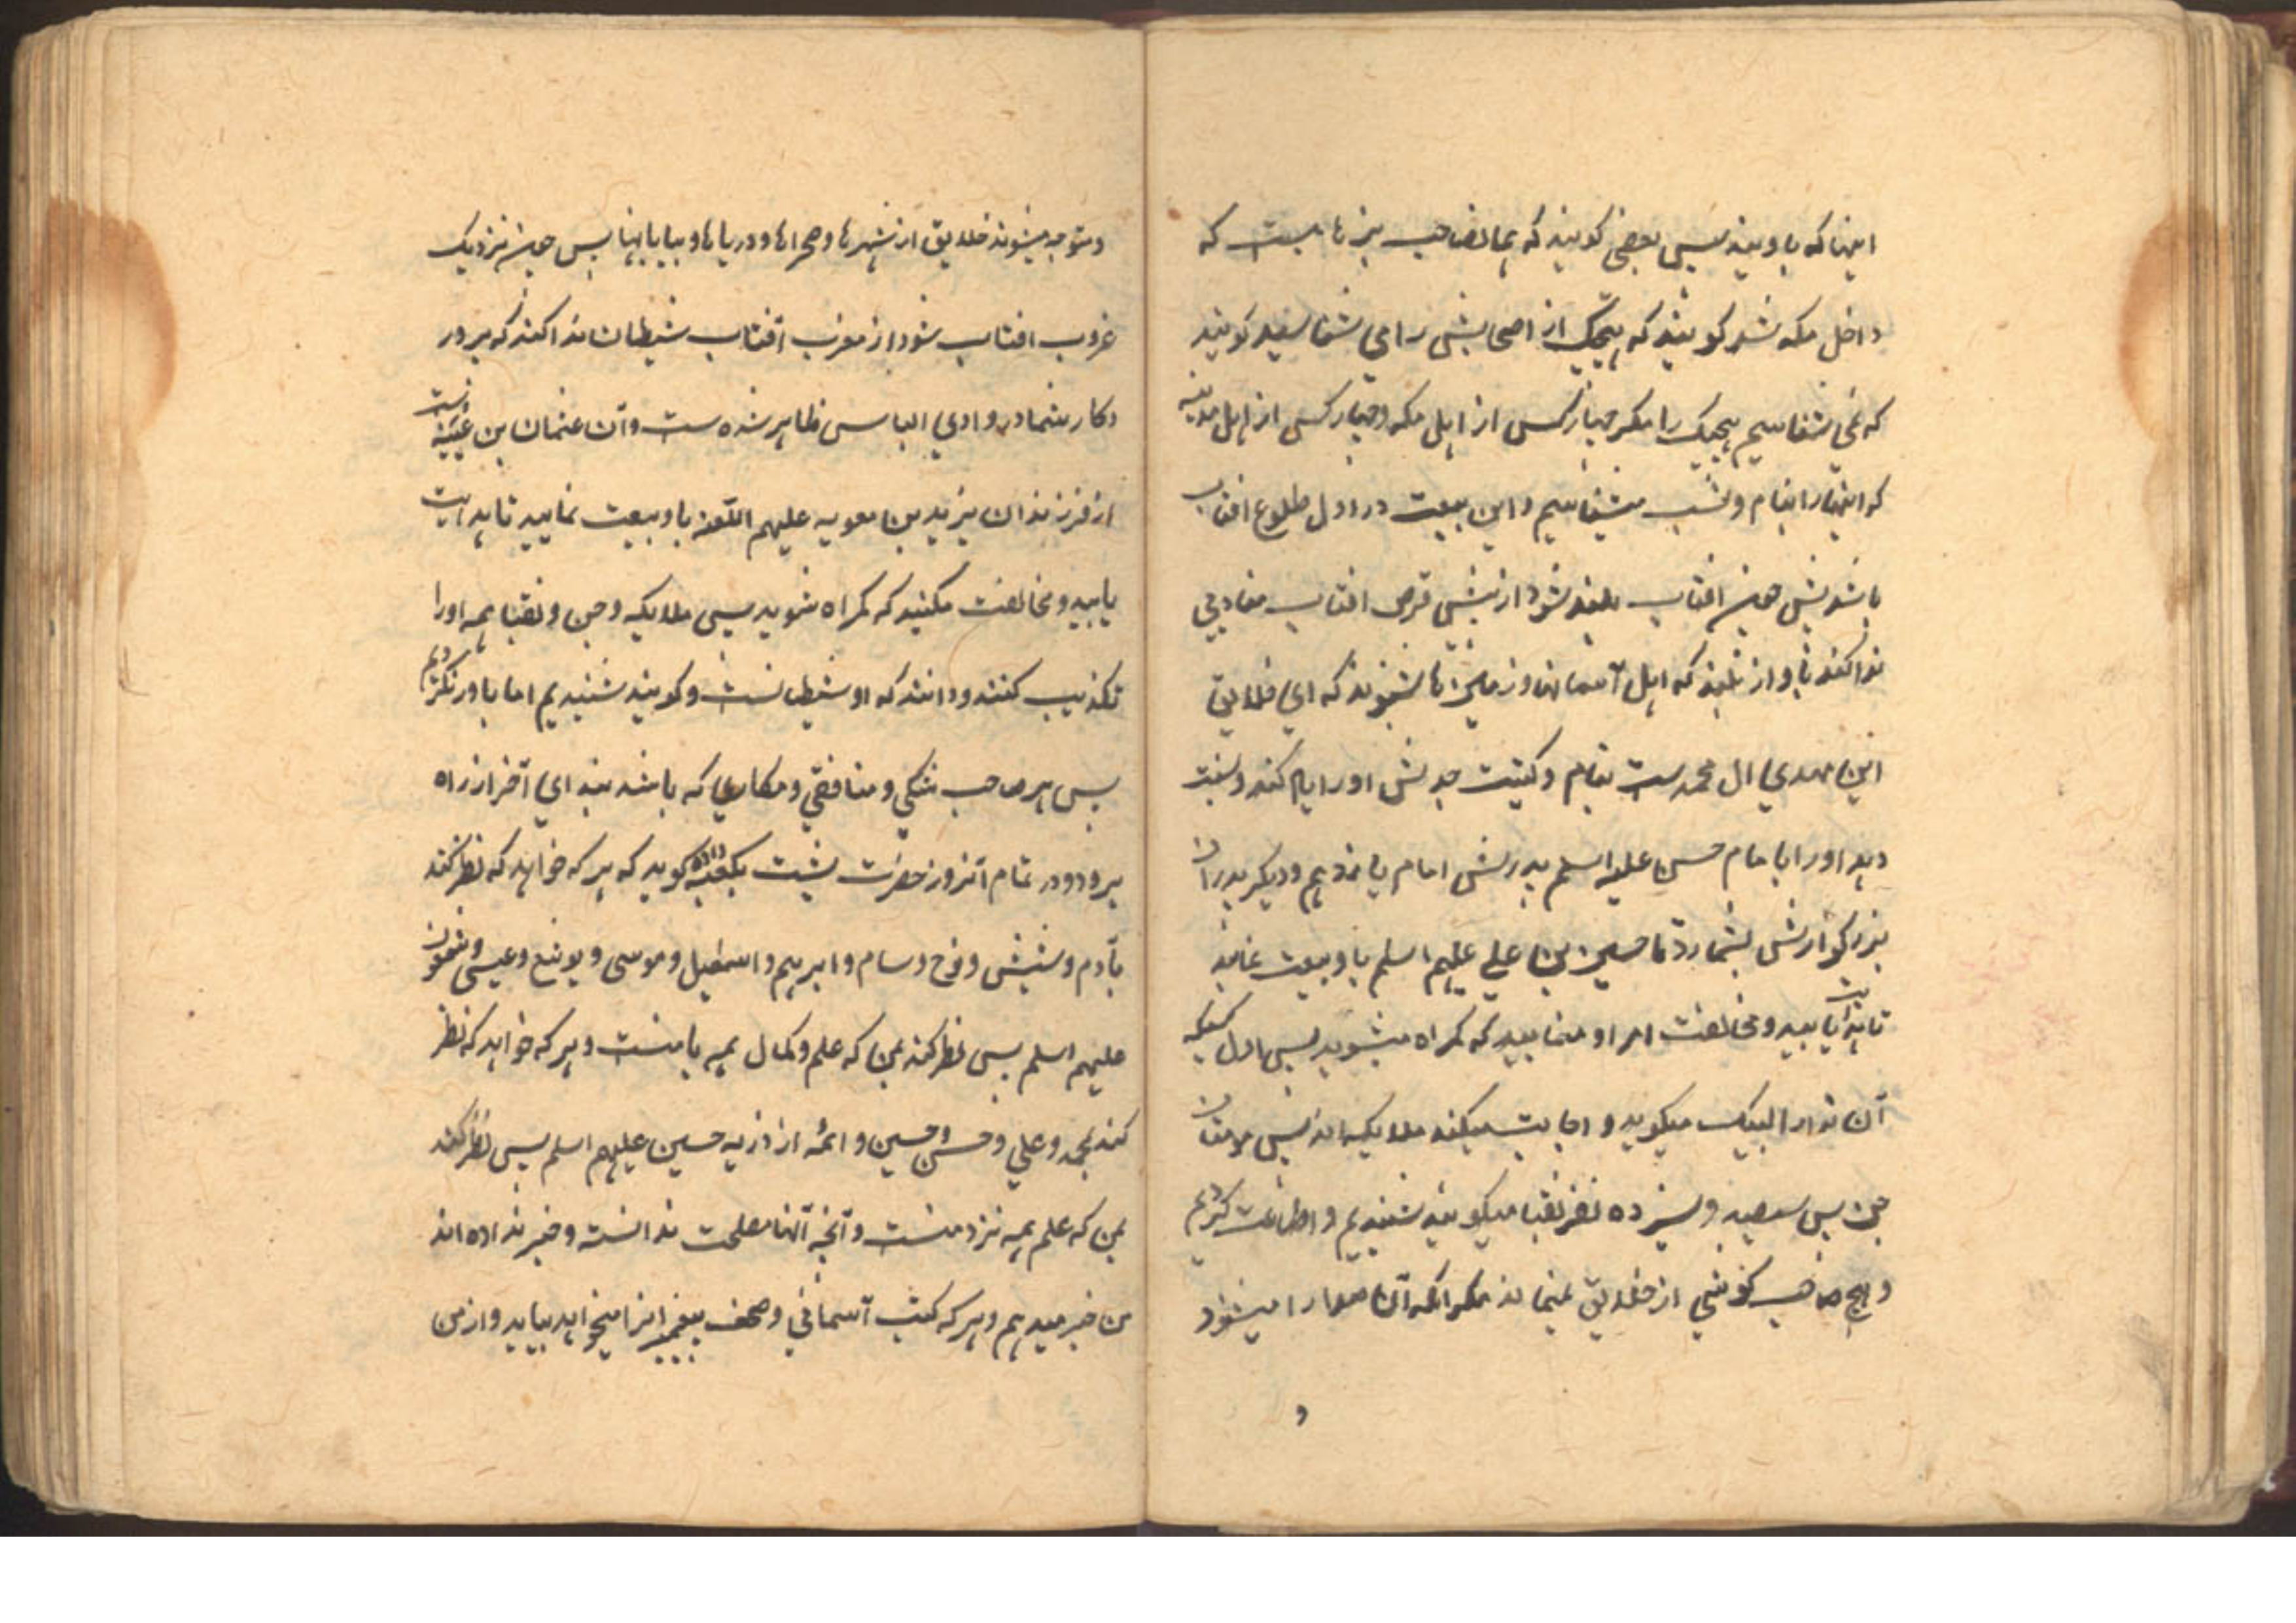 اینها که با ویند پس بعضی کویند که همانصاحب بزهاست که
داخل مکه شد کویند که هیچیک از اصحابش را می شناسید کویند
که نمی شناسیم هیچیک را مکر چهار کس از اهل مکه و چهار کس از اهل مدینه
که اینها را بنام و نسب میشناسیم و این بیعت در اول طلوع افتاب
باشد پس چون افتاب بلند شود از پیش قرص افتاب منادیی
ندا کند باواز بلند که اهل آسمانها و زمینها بشنوند که ای خلایق
این مهدی ال محمدست بنام و کنیت جدش او را یاد کند و نسبت
دهد او را بامام حسن علیه اسلم پدرش امام یازدهم و دیکر پدران
بزرکوارش بشمارد تا حسین بن علی علیهم اسلم با و بیعت نمایید
تا هدایت یابید و مخالفت امر او منمایید که کمراه میشوید پس اول کسیکه
آن ندا را لبیک میکوید و اجابت میکند ملایکه اند پس مومنان
جن پس سیصد و سیزده نفر نقبا میکویند شنیدیم و اطاعت کردیم
و هیچ صاحب کوشی از خلایق نمیماند مکر انکه آن صدا را میشنود
و
و متوجه میشوند خلایق از شهرها و صحراها و دریاها و بیابانها پس چون نزدیک
غروب افتاب شود از مغرب آفتاب شیطان ندا کند که پرور
دکار شما در وادی الیابس ظاهر شده ست و آن عثمان بن عنبسه ست
از فرزندان یزید بن معویه علیهم اللعنه با و بیعت نمایید تا هدایت
یابید و مخالفت مکنید که کمراه شوید پس ملایکه و جن و نقبا همه او را
تکذیب کنند و دانند که او شیطانست و کویند شنیدیم اما باور نکردیم
پس هر صاحب شکی و منافقی و مکاری که باشد بندای آخر از راه
برود و در تمام آنروز حضرت پشت بکعبه داده کوید که هر که خواهد که نظر کند
بآدم و شیث و نوح و سام و ابرهیم و اسمعیل و موسی و یوشع و عیسی و شمعون
علیهم اسلم پس نظر کند بمن که علم و کمال همه با منست و هر که خواهد که نظر
کند بمحمد و علی و حسن و حسین و ائمه از ذریه حسین علیهم اسلم پس نظر کند
بمن که علم همه نزد منست و آنچه آنها مصلحت ندانسته و خبر نداده اند
من خبر میدهم و هر که کتب آسمانی و صحف پیغمبرانرا میخواهد بیاید و از من